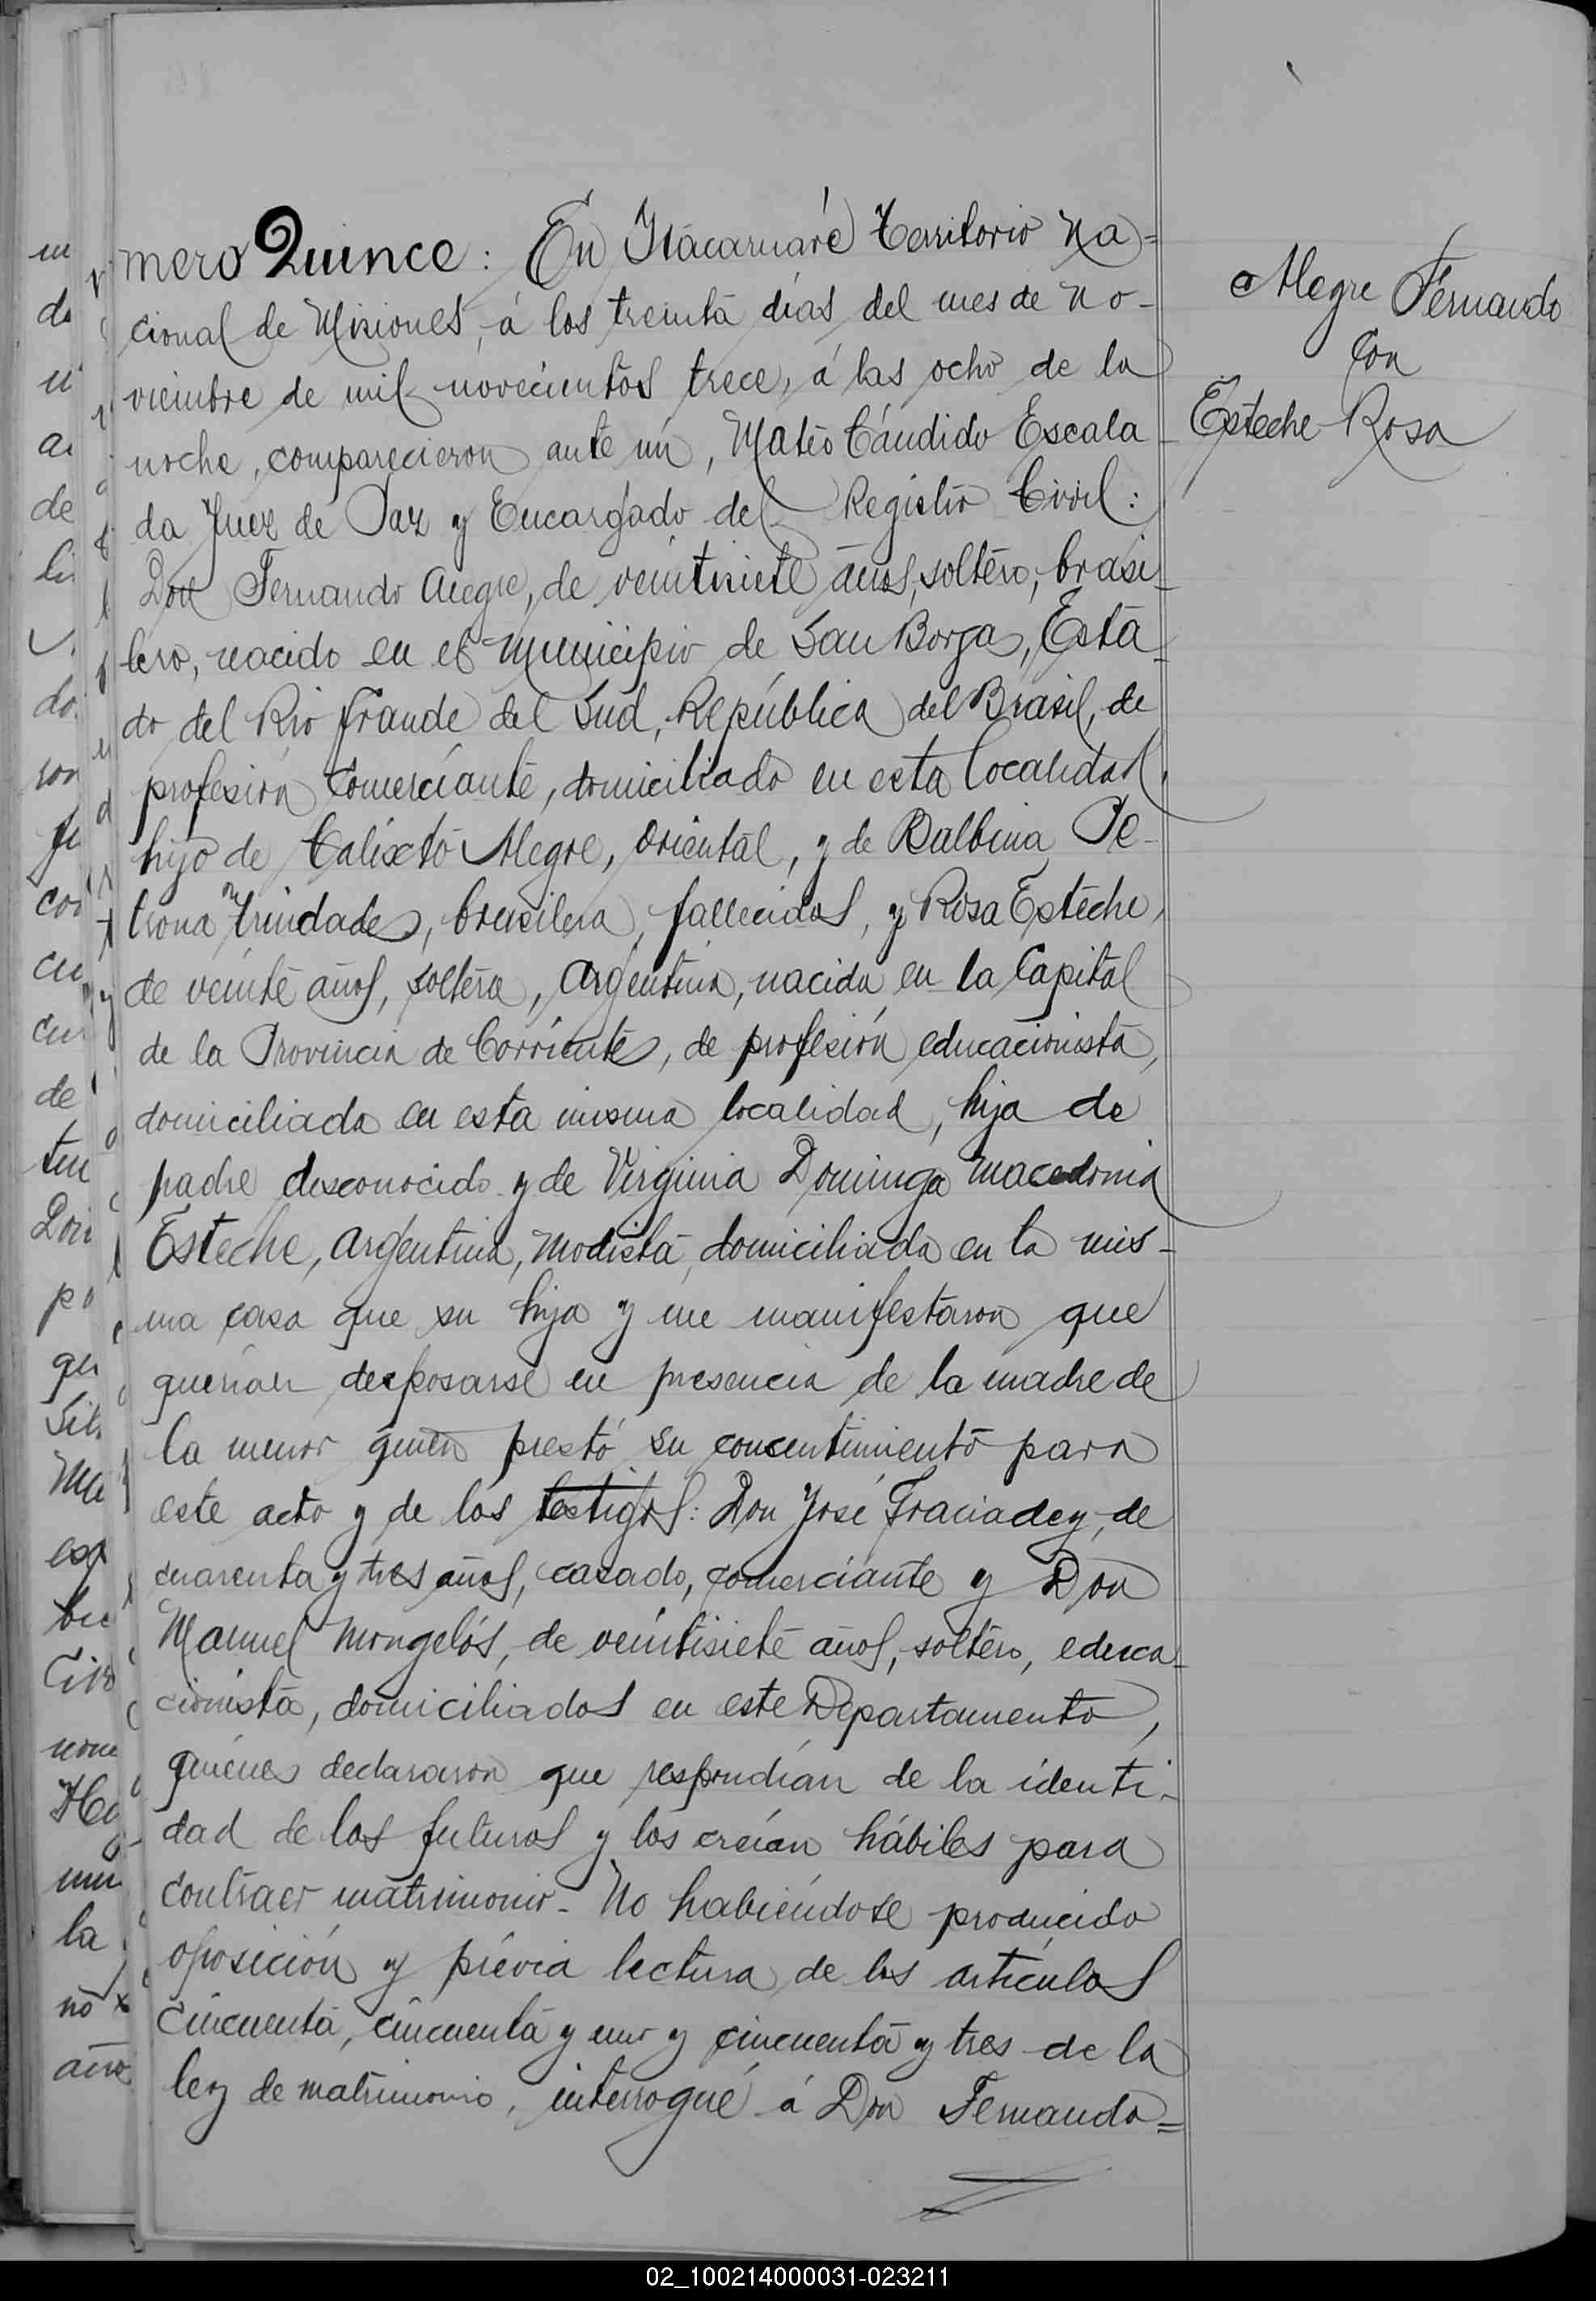 mero Quince: En Itacaruaré Territorio Na=
cional de Misiones, á los treinta días del mes de No-
viembre de mil novecientos trece, á las ocho de la
noche, comparecieron ante mí, Mateo Cándido Escala
da Juez de Paz y Encargado del Registro Civil:
Don Fernando Alegre, de veintisiete años, soltero, brasi-
lero, nacido en el Municipio de San Borja, Esta-
do del Rio Grande del Sud, República del Brasil, de
profesión Comerciante, domiciliado en esta localidad,
hijo de Calixto Alegre, oriental, y de Balbina Pe-
trona Trindade, brasilera, fallecidos, y Rosa Esteche,
de veinte años, soltera, Argentina, nacida en la Capital
de la Provincia de Corrientes, de profesión educacionista,
domiciliada en esta misma localidad, hija de
padre desconocido y de Virginia Dominga Macedonia
Esteche, Argentina, Modista, domiciliada en la mis-
ma casa que su hija y me manifestaron que
querían desposarse en presencia de la madre de
la menor quien prestó su concentimiento para
este acto y de los testigos: Don José Graciadey, de
cuarenta y tres años, casado, comerciante y Don
Manuel Mongelós, de veintisiete años, soltero, educa-
cionista, domiciliados en este Departamento,
quienes declararon que respondían de la identi-
dad de los futuros y los creían hábiles para
contraer matrimonio - No habiéndose producido
oposición y prévia lectura de los artículos
cincuenta, cincuenta y uno y cincuenta y tres de la
ley de matrimonio, interrogué á Don Fernando=
Alegre Fernando
con
Esteche Rosa
02_100214000031-023211